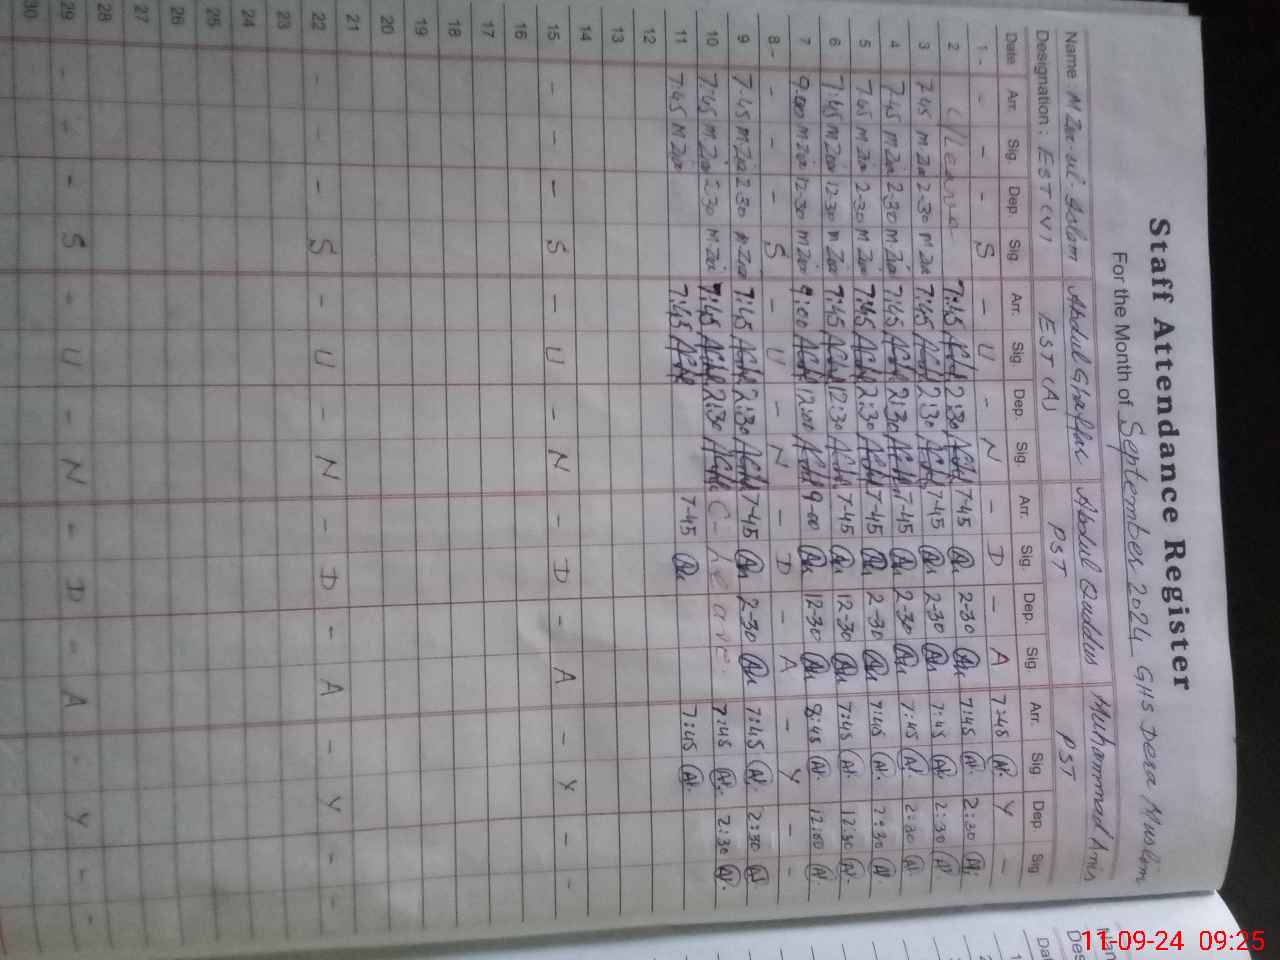 Staff Attendance Register
For the Month of September 2024 GHS Dera Muslim
Name : M Zia-ul-Islam Abdul Ghaffar Abdul Quddus Muhammad Anis
Designation : EST (V) EST (A) PST PST
Date Arr. Sig. Dep. Sig. Arr. Sig. Dep. Sig. Arr. Sig. Dep. Sig. Arr. Sig Dep. Sig
1 - - - - S - U - N - D - A 7:45 Y -
2 C/Leave 7:45 2:30 7-45 2-30 7:45 2:30
3 7:45 M Zia 2-30 M Zia 7:45 2:30 7-45 2-30 7:45 2:30
4 7:45 M Zia 2:30 M Zia 7:45 2:30 7-45 2-30 7:45 2:30
5 7:45 M Zia 2-30 M Zia 7:45 2:30 7-45 2-30 7:45 2:30
6 7:45 M Zia 12:30 M Zia 7:45 12:30 7-45 12-30 7:45 12:30
7 9:00 M Zia 12:30 M Zia 9:00 12:00 9-00 12-30 8:45 12:00
8 - - - - S - U - N - D - A - Y - -
9 7:45 M Zia 2:30 M Zia 7:45 2:30 7-45 2-30 7:45 2:30
10 7:45 M Zia 2:30 M Zia 7:45 2:30 C-Leave 7:45 2:30
11 7:45 M Zia 7:45 7-45 7:45
12
13
14
15 - - - S - U - N - D - A - Y - -
16
17
18
19
20
21
22 - - - S - U - N - D - A - Y - -
23
24
25
26
27
28
29 - - - S - U - N - D - A - Y - -
30
11-09-24 09:25